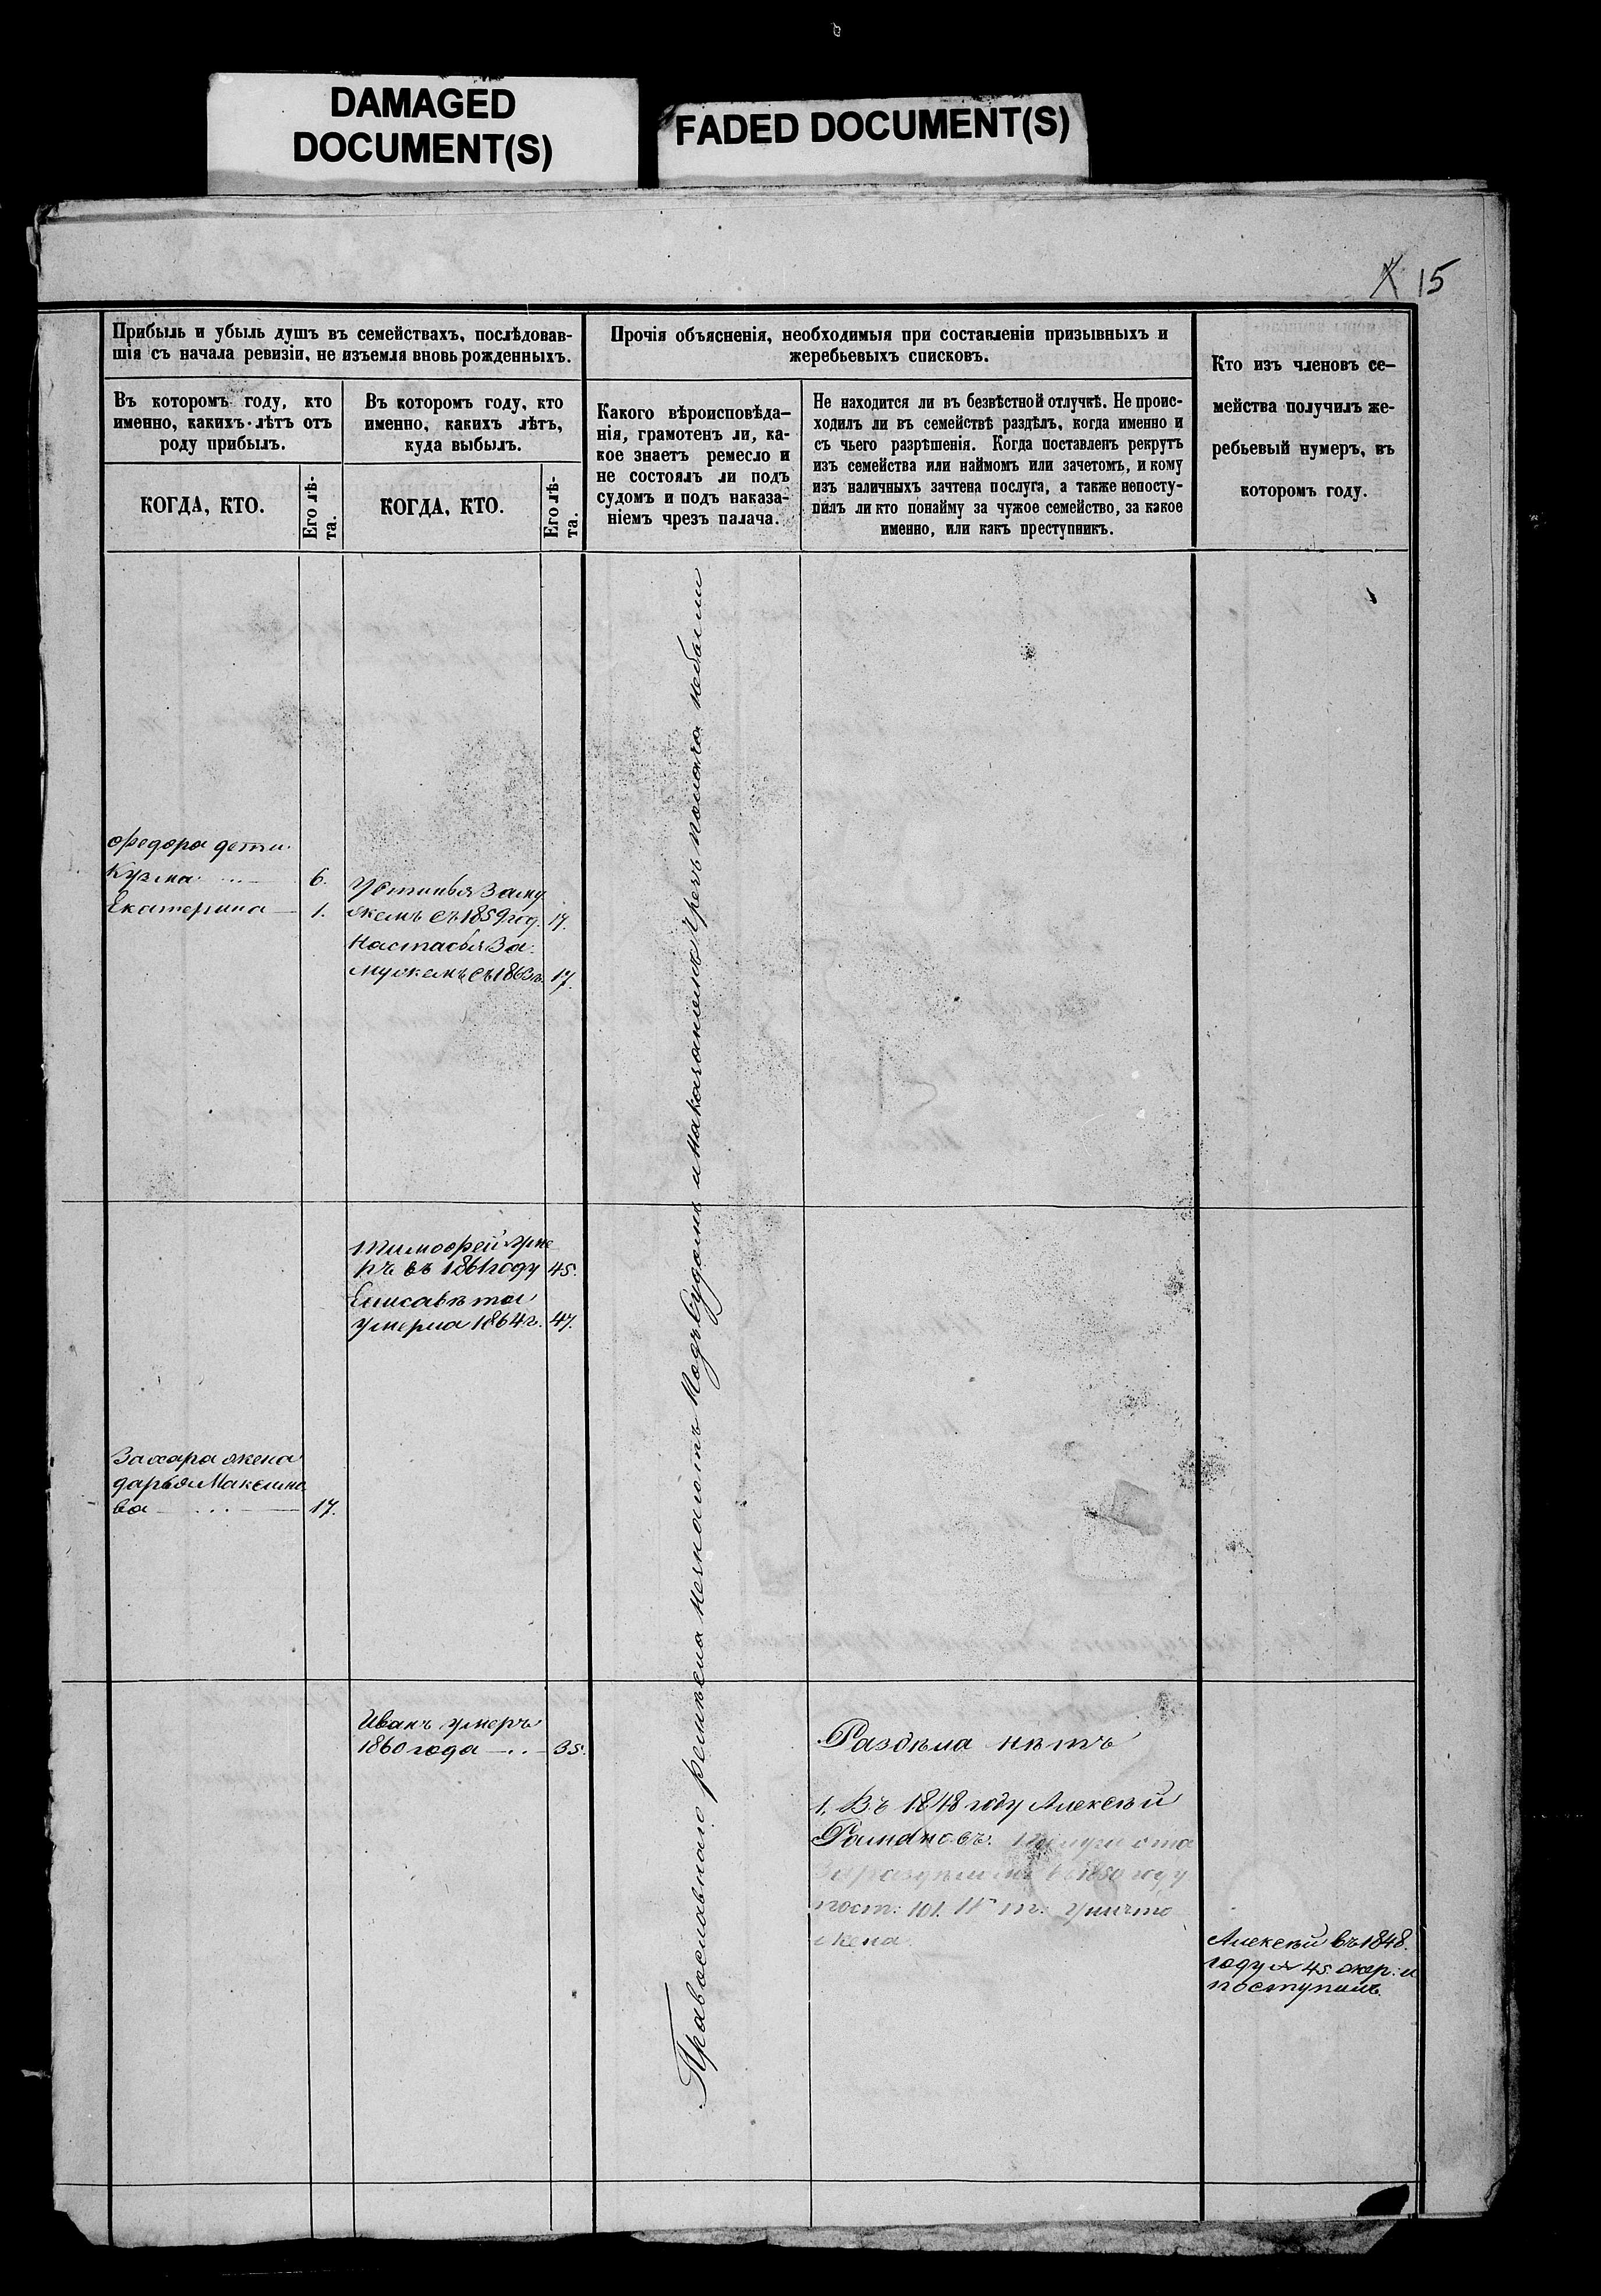 DAMAGED
DOCUMENT(S)
FADED DOCUMENT(S)
15
Прибыль и убыль душъ въ семействахъ, послѣдовав-
шія съ начала ревизіи, не изъемля вновь рожденныхъ.
Въ которомъ году, кто
именно, какихъ лѣтъ отъ
роду прибылъ.
КОГДА, КТО.
Его лѣ-
та.
Въ которомъ году, кто
именно, какихъ лѣтъ,
куда выбылъ.
КОГДА, КТО.
Его лѣ-
та.
Прочія объясненія, необходимыя при составленіи призывныхъ и
жеребьевыхъ списковъ.
Какого вѣроисповѣда-
нія, грамотенъ ли, ка-
кое знаетъ ремесло и
не состоялъ ли подъ
судомъ и подъ наказа-
ніемъ чрезъ палача.
Не находится ли въ безвѣстной отлучкѣ. Не проис-
ходилъ ли въ семействѣ раздѣлъ, когда именно и
съ чьего разрѣшенія. Когда поставленъ рекрутъ
изъ семейства или наймомъ или зачетомъ, и кому
изъ наличныхъ зачтена послуга, а также непосту-
пилъ ли кто понайму за чужое семейство, за какое
именно, или какъ преступникъ.
Кто изъ членовъ се-
мейства получилъ же-
ребьевый нумеръ, въ
которомъ году.
Федора дети
Кузма 6.
Екатерина 1.
Устинья Заму
жемъ съ 1859 год. 17.
Настасья За
мужемъ съ 1863 г. 17.
Тимофей Уме
ръ въ 1861 году 45.
Елисавѣта
умерла 1864 г. 47.
Захара жена
дарья Максимо
ва 17.
Иванъ умеръ
1860 года 35.
Православнаго ремѣсла незнаютъ Подъ Судомъ и наказаніемъ чрезъ палача небыли
Раздѣла нѣтъ
1. Въ 1848 году Алексѣй
Романовъ.
въ 1850 году
пост: 101. Уничто
жена.
Алексѣй въ 1848.
году № 45. жер: и
поступилъ.